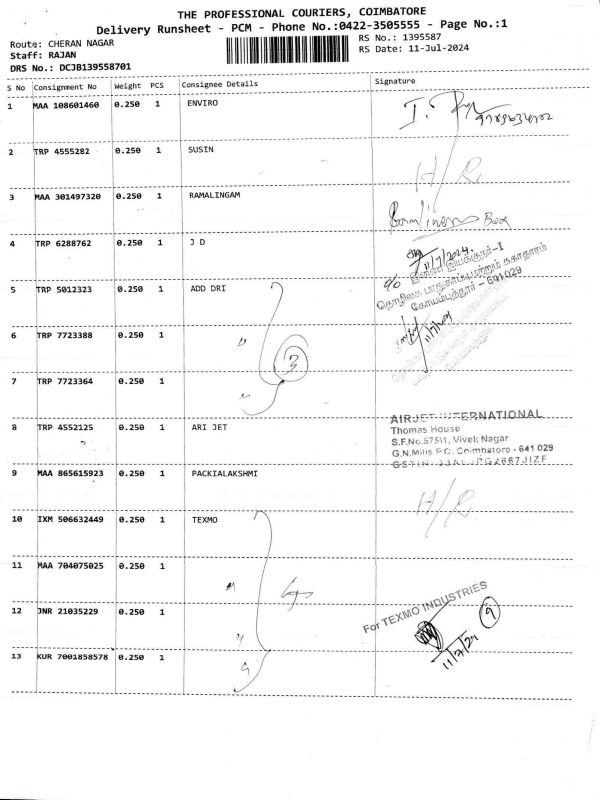 THE PROFESSIONAL COURIERS, COIMBATORE
Delivery Runsheet - PCM - Phone No.:0422-3505555 - Page No.:1
Route: CHERAN NAGAR
RS No.: 1395587
Staff: RAJAN
RS Date: 11-Jul-2024
DRS No.: DCJB139558701
S No Consignment No Weight PCS Consignee Details Signature
1 MAA 108601460 0.250 1 ENVIRO
2 TRP 4555282 0.250 1 SUSIN
H/R
3 MAA 301497320 0.250 1 RAMALINGAM
Box
4 TRP 6288762 0.250 1 J D
11/7/2024
இணை இயக்குநர்-I
தொழிலக பாதுகாப்பு மற்றும் சுகாதாரம்
கோயம்புத்தூர் - 641 029
5 TRP 5012323 0.250 1 ADD DRI
6 TRP 7723388 0.250 1
3
7 TRP 7723364 0.250 1
8 TRP 4552125 0.250 1 ARI JET
AIRJET INTERNATIONAL
Thomas House
S.F.No.575\1, Vivek Nagar
G.N.Mills P.O, Coimbatore - 641 029
9 MAA 865615923 0.250 1 PACKIALAKSHMI
H/R
10 IXM 506632449 0.250 1 TEXMO
11 MAA 704075025 0.250 1
For TEXMO INDUSTRIES
12 JNR 21035229 0.250 1
9
11/7/24
13 KUR 7001858578 0.250 1